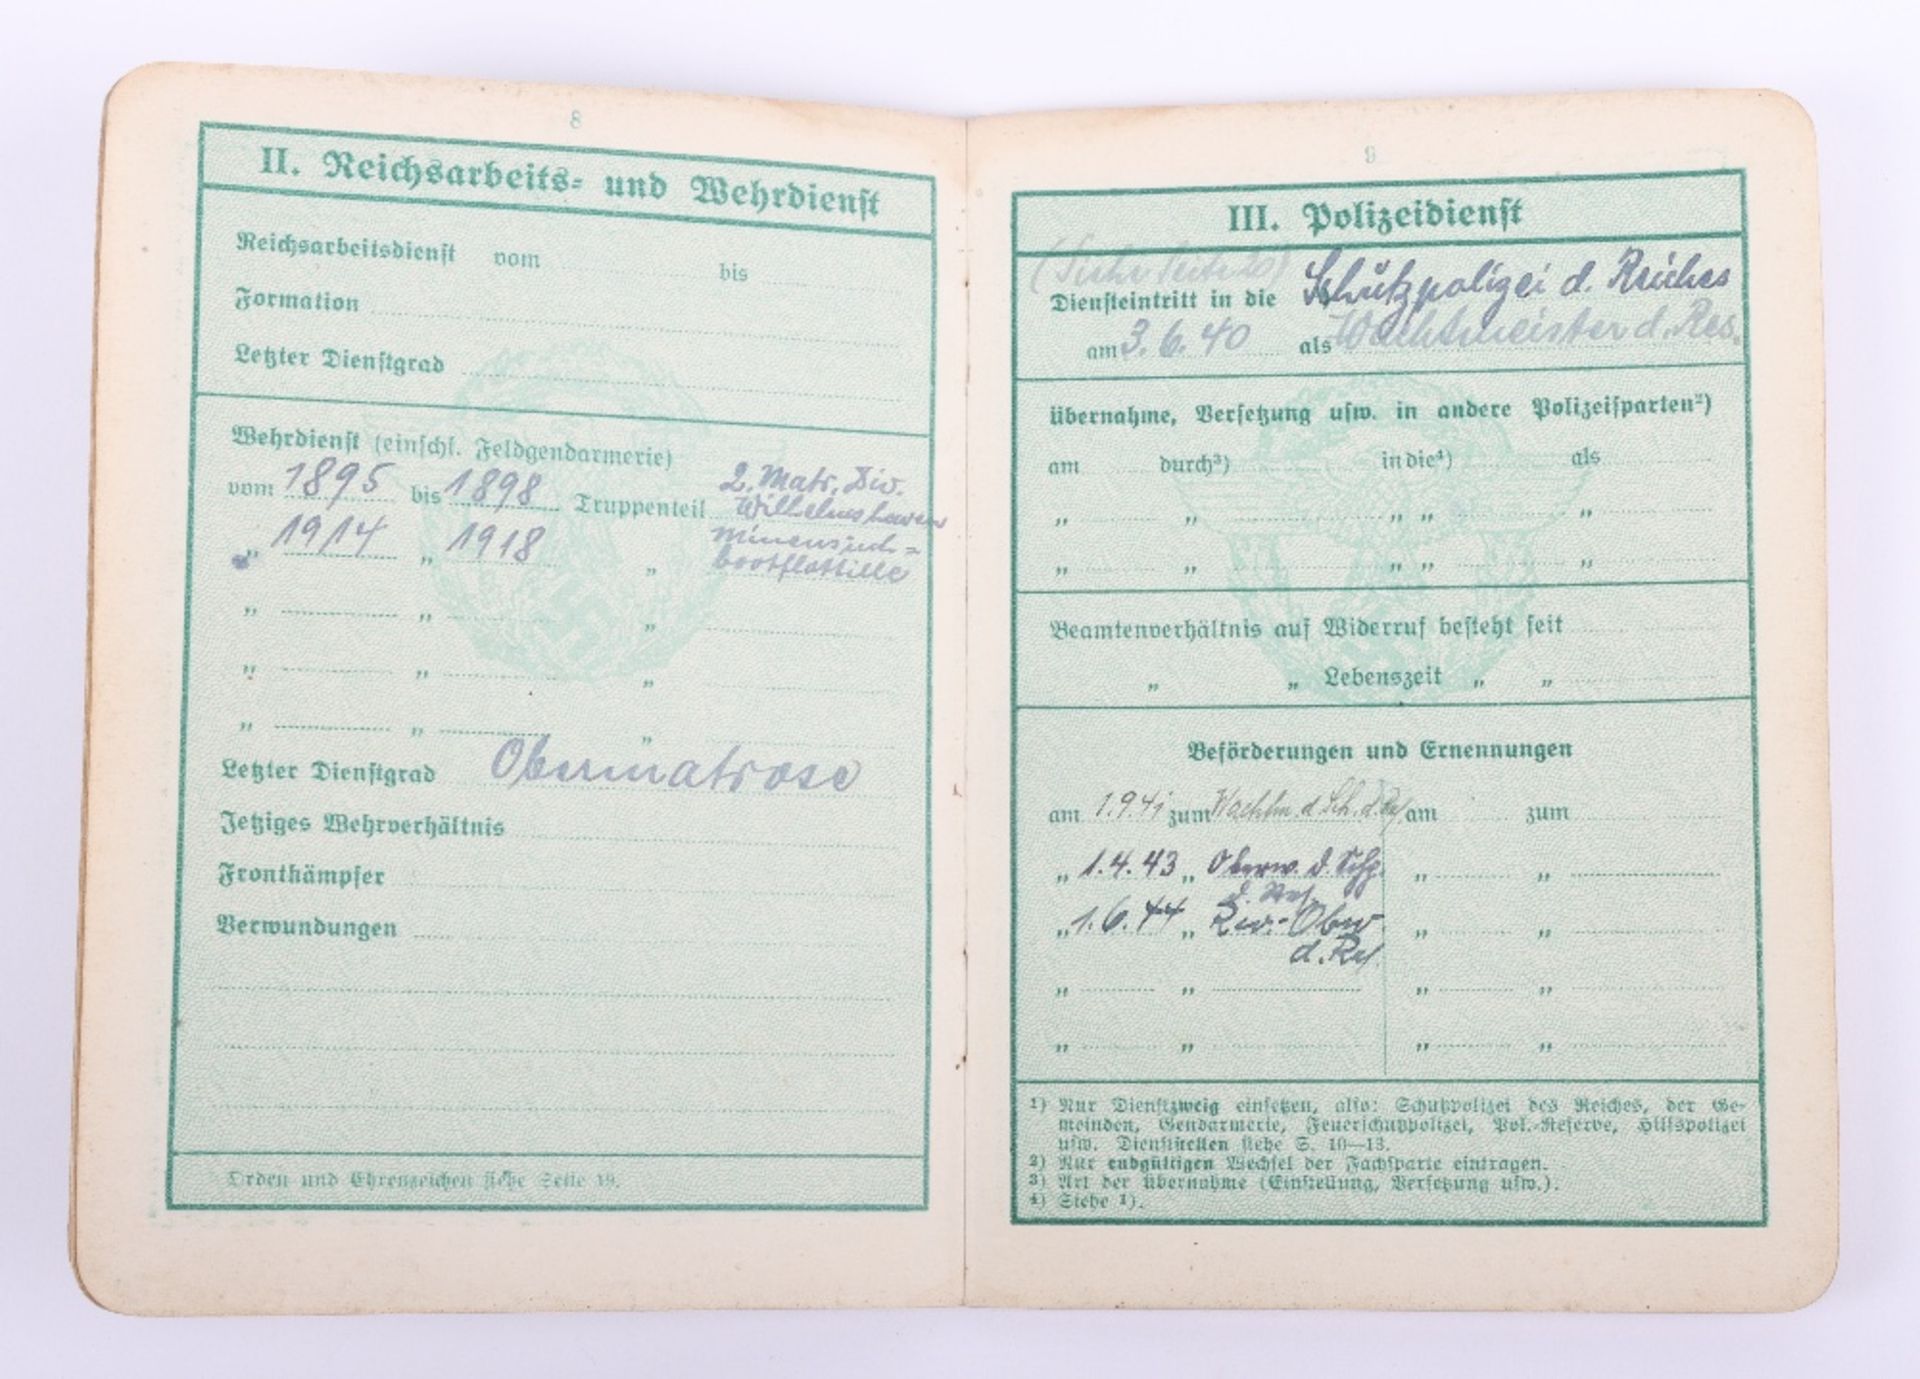 8
II. Reichsarbeits- und Wehrdienst
Reichsarbeitsdienst vom bis
Formation
Letzter Dienstgrad
Wehrdienst (einschl. Feldgendarmerie)
vom 1895 bis 1898 Truppenteil 2. Matr. Div. Wilhelmshaven
" 1914 " 1918 " Minensuch=
bootflottille
" " "
" " "
" " "
Letzter Dienstgrad Obermatrose
Jetziges Wehrverhältnis
Frontkämpfer
Verwundungen
Orden und Ehrenzeichen siehe Seite 19.
9
III. Polizeidienst
(Siehe Seite 20)
Diensteintritt in die Schutzpolizei d. Reiches
am 3.6.40 als Wachtmeister d. Res.
übernahme, Versetzung usw. in andere Polizeisparten²)
am durch³) in die⁴) als
" " " " "
" " " " "
Beamtenverhältnis auf Widerruf besteht seit
" " Lebenszeit " "
Beförderungen und Ernennungen
am 1.9.41 zum Wachtm. d. Sch. d. Res am zum
" 1.4.43 " Oberw. d. Schp. " "
d. Res.
" 1.6.44 " Rev.-Obw " "
d. Res.
" " " "
" " " "
1) Nur Dienstzweig einsetzen, also: Schutzpolizei des Reiches, der Ge-
meinden, Gendarmerie, Feuerschutzpolizei, Pol.-Reserve, Hilfspolizei
usw. Dienststellen siehe S. 10—13.
2) Nur endgültigen Wechsel der Fachsparte eintragen.
3) Art der übernahme (Einstellung, Versetzung usw.).
4) Siehe 1).